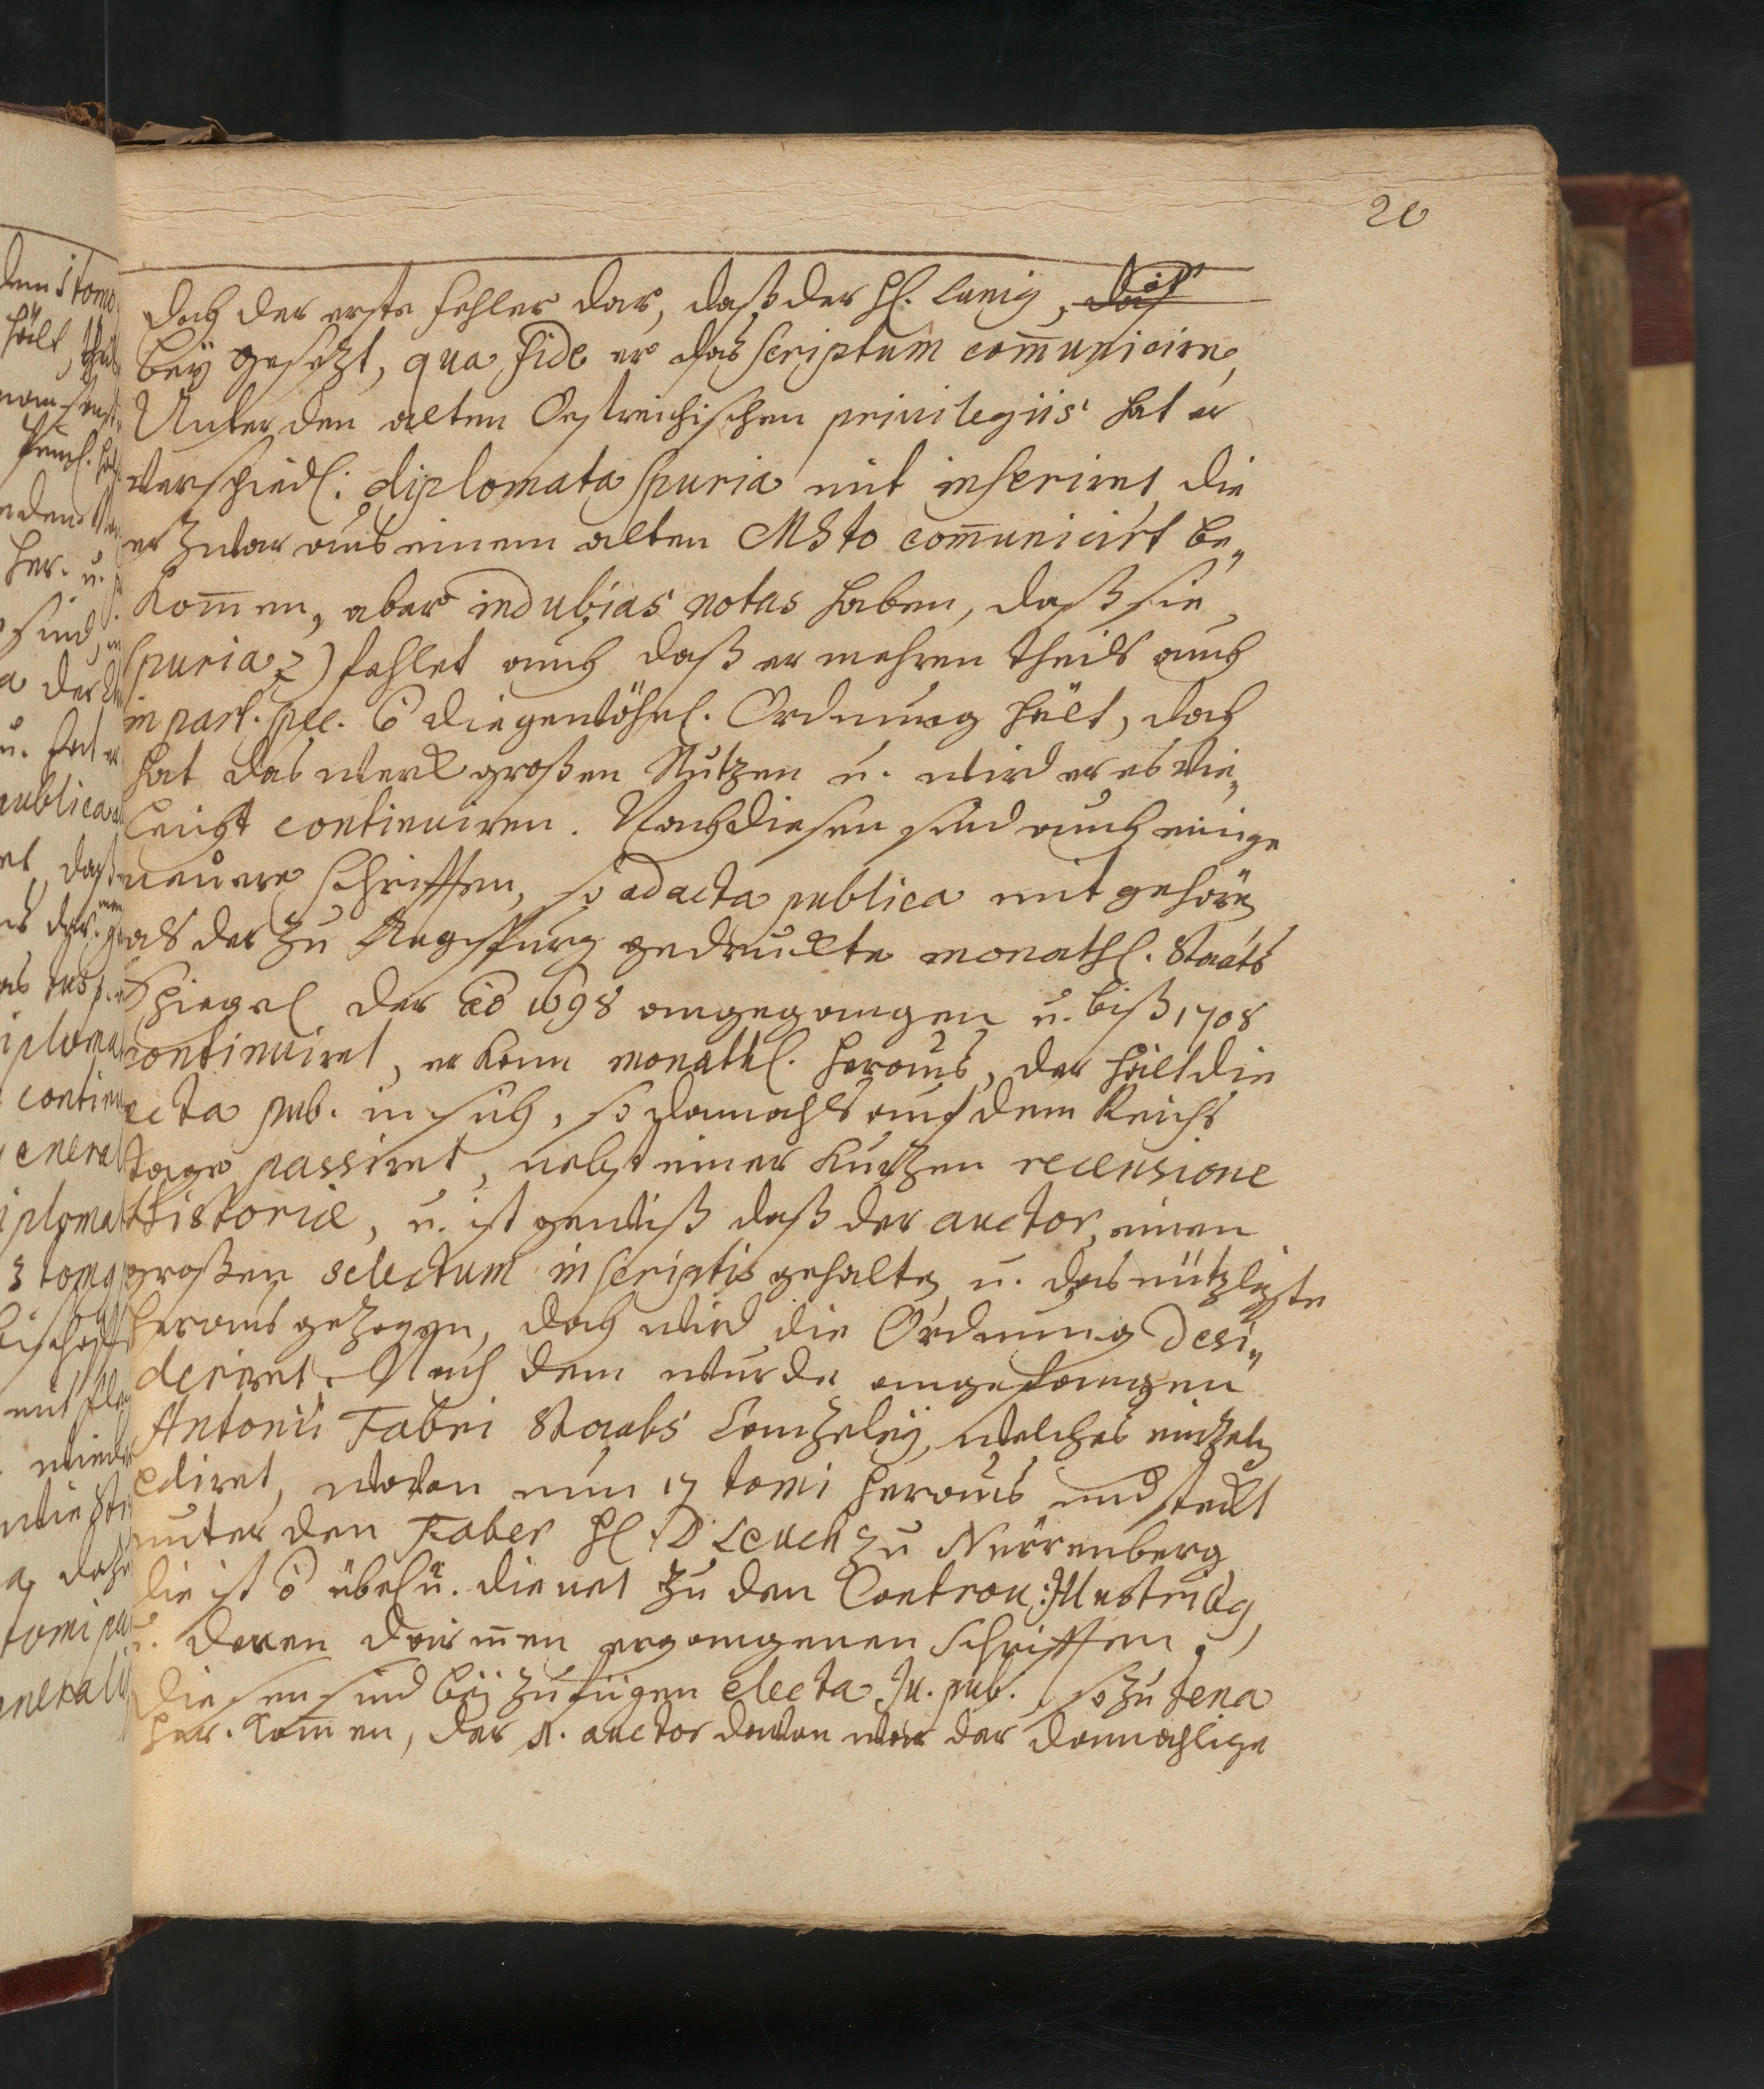 20
doch der erste fehler dar, daß der H. Lunig, das
bey gesetzt, qua fide er das scriptum com̄unicire,
Unter den alten Oestreichischen privilegiis hat er
verschiedl: diplomata spuria mit inseriret die
er zwar aus einem alten MSto com̄unicirt be„
kom̄en, aber indubias notas haben, daß sie
spuria 2) fehlet auch daß er mehren theils auch
in part. spec. ō die gewöhnl. Ordnung hält, doch
hat das werck großen Nutzen u. wird er es vie„
leicht continuiren. Nach diesen sind auch einige
neuere Schrifften, so ad acta publica mit gehörẽ
als der zu Augspurg gedruckte monathl. Staats
Spiegel der aō 1698 angegangen u. biß 1708
continuiret, er kam monathl. heraus, der hält die
acta pub. in sich, so damahls auf dem Reichs
tage passiret, nebst einer kurtzen recensione
Historiæ, u. ist gewiß daß der auctor einen
großen selectum in scriptis gehalten u. das nützlichste
heraus gezogen, doch wird die Ordnung desi„
deriret. Nach dem wurde angefangen
Antonii Fabri Staats Cantzeley, welches eintzeln
ediret, wovon nun 17 tomi heraus und steckt
unter den Faber H. D Leucht zu Nürrenberg
die ist ō übel u. dienet zu den Controv: Illustribg
u. deren darinnen ergangenen Schrifften.
Diesen sind bey zufügen electa Ju. pub. so zu Jena
her. kom̄en, der auctor davon war der damahlige